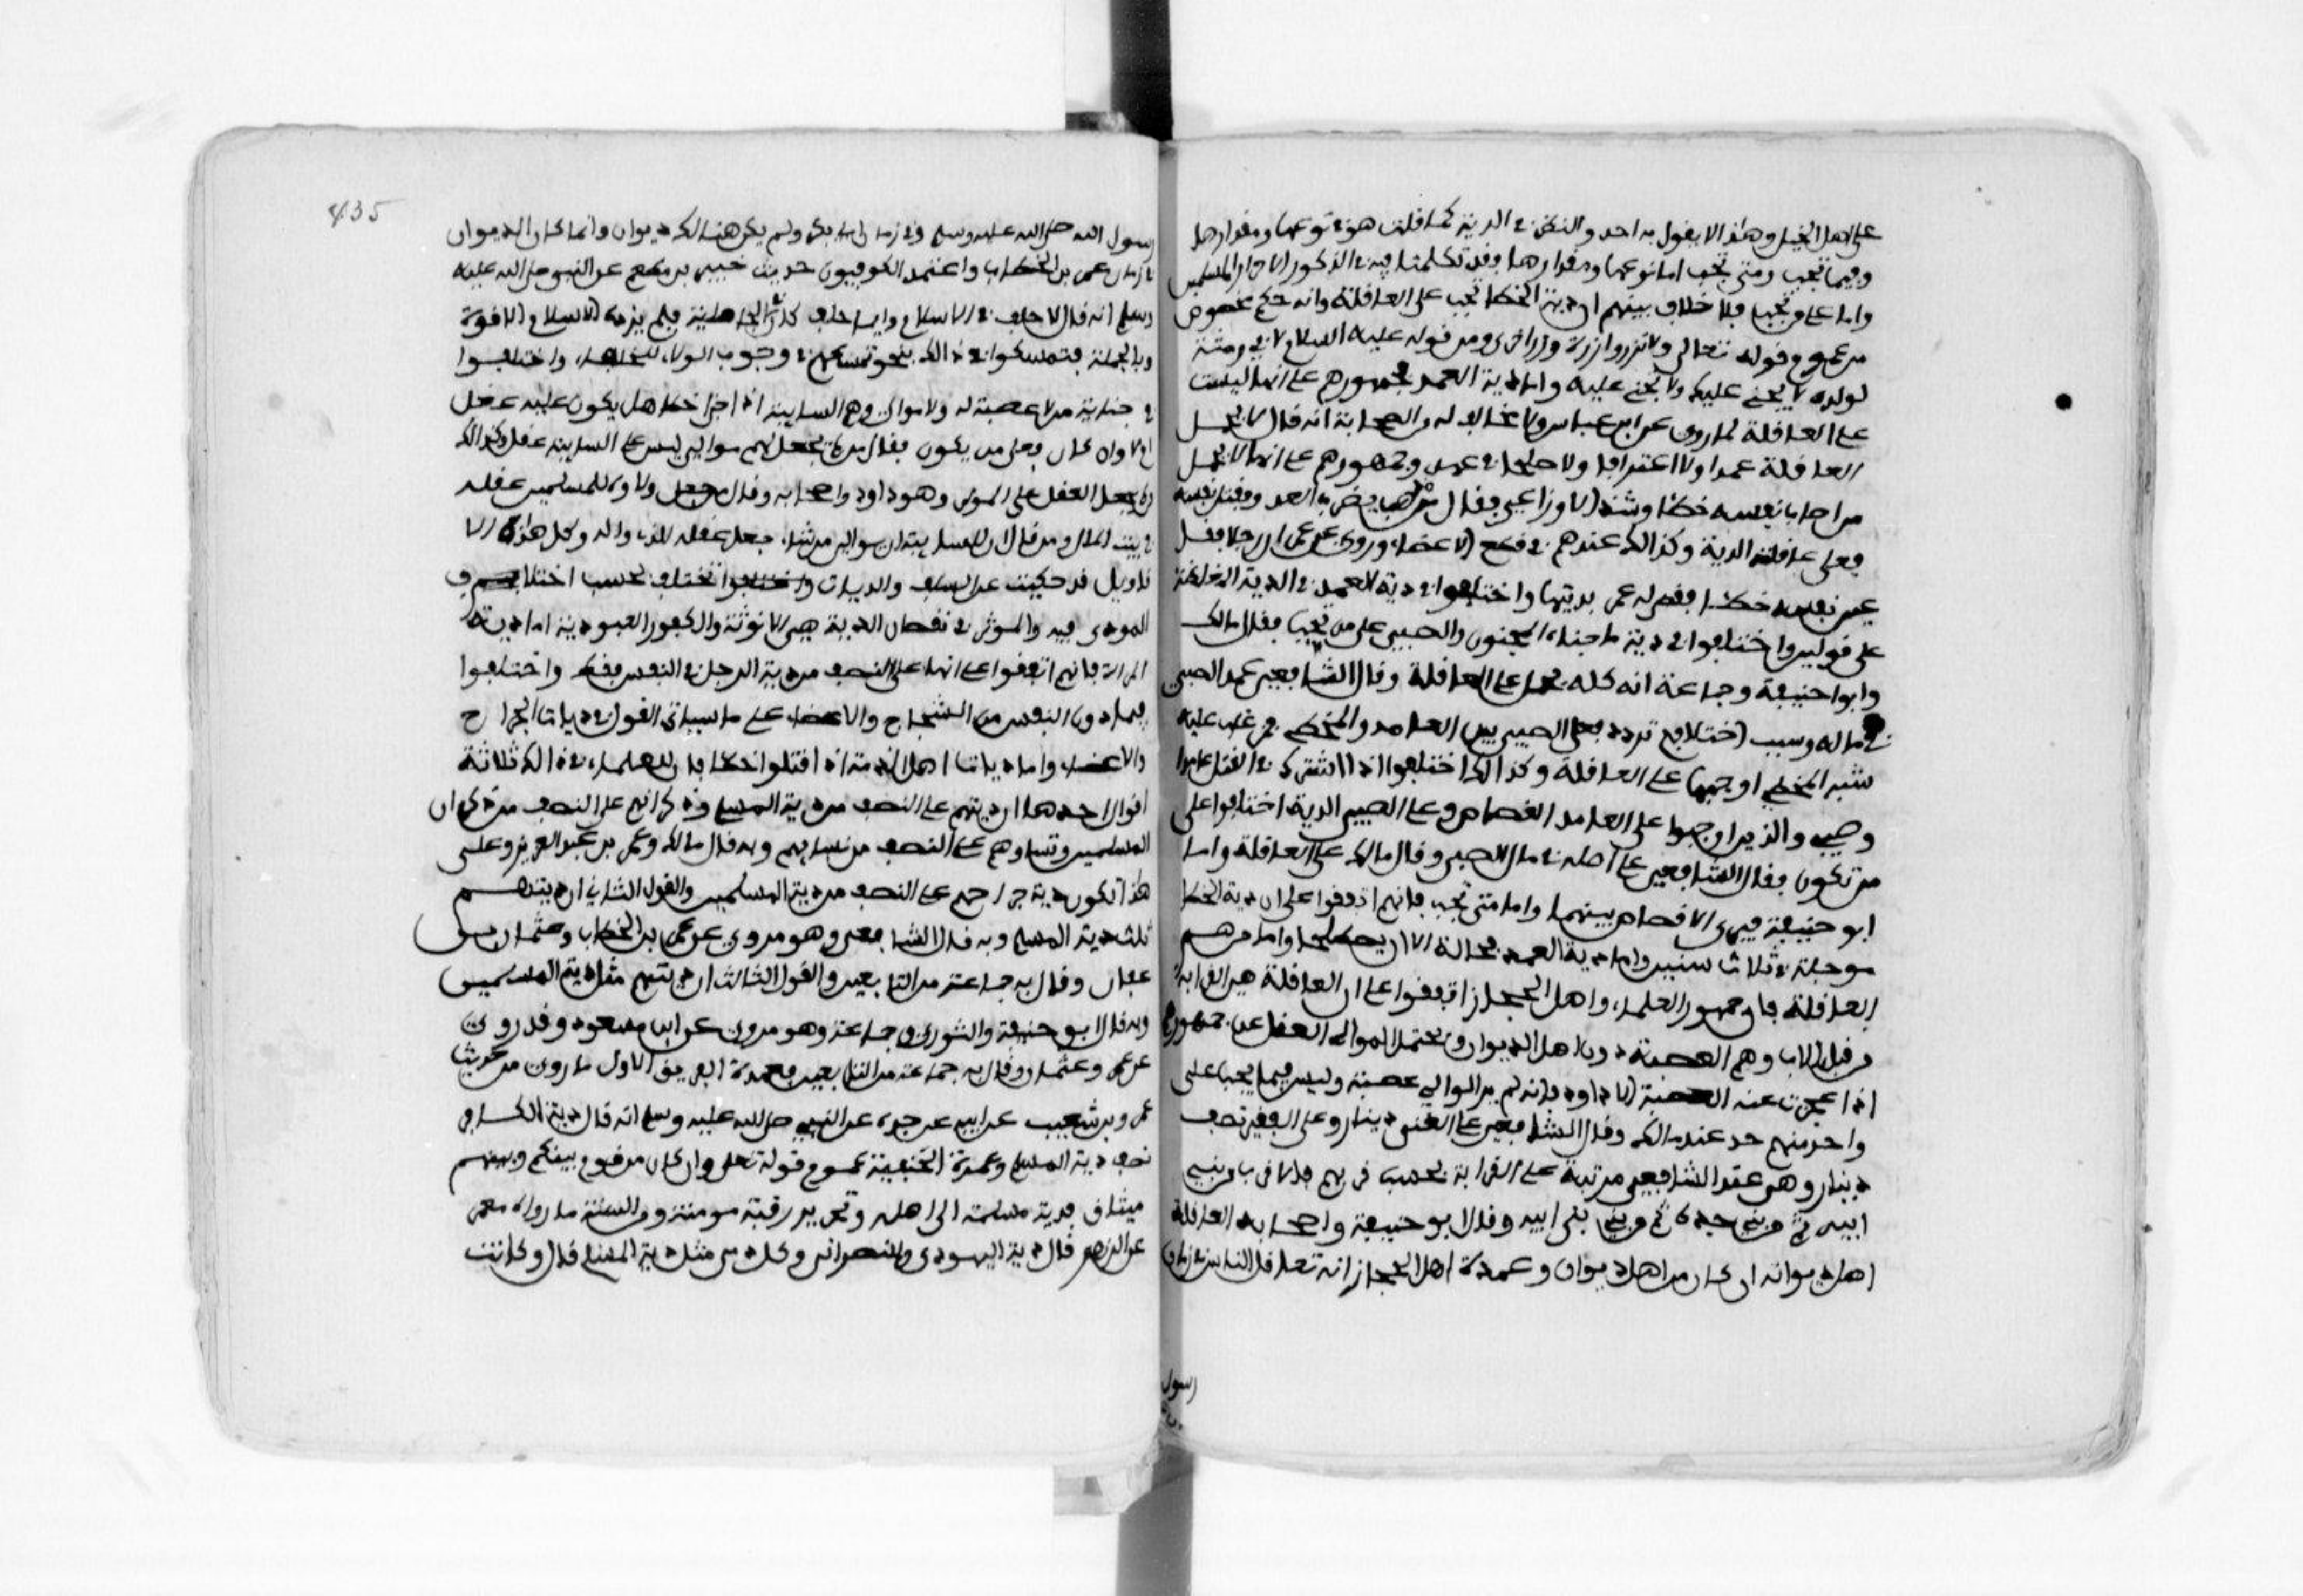 على اهل الخيل وهذا لا يقول به احد والنظر في الدية كما قلت هو في نوعها ومقدارها
وفيما تجب ومتى تجب اما نوعها ومقدارها فقد تكلمنا فيه في الذكور الاحرار المسلمين
واما على من تجب فلا خلاف بينهم ان دية الخطا تجب على العاقلة وانه حكم مخصوص
من عموم قوله تعالى ولا تزر وازرة وزر اخرى ومن قوله عليه السلام لابي رمثة
لولده لا يجني عليك ولا تجني عليه واما دية العمد فجمهورهم على انها ليست
على العاقلة لما روي عن ابن عباس ولا مخالف له من الصحابة انه قال لا تحمل
العاقلة عمدا ولا اعترافا ولا صلحا في عمد وجمهورهم على انها لا تحمل
من اصاب نفسه خطا وشذ الاوزاعي فقال من ذهب يضرب العدو فقتل نفسه
فعلى عاقلته الدية وكذالك عندهم في قطع الاعضاء وروي عن عمر ان رجلا فقا
عين نفسه خطا فقضى له عمر بديتها واختلفوا في دية العمد في الدية المغلظة
على قولين واختلفوا في دية ما جناه المجنون والصبي على من تجب فقال مالك
وابوا حنيفة وجماعة انه كله يحمل على العاقلة وقال الشافعي عمد الصبي
في ماله وسبب اختلافهم تردد فعل الصبي بين العامد والمخطي فمن غلب عليه
شبه المخطي اوجبها على العاقلة وكذالك اختلفوا اذا اشترك في القتل عامدا
وصبي والذين اوجبوا على العامد القصاص وعلى الصبي الدية اختلفوا على
من تكون فقال الشافعي على اصله في مال الصبي وقال مالك على العاقلة واما
ابو حنيفة فيرى الا قصاص بينهما واما متى تجب فانهم اتفقوا على ان دية الخطا
موجلة في ثلاث سنين واما دية العمد فحالة الا ان يصطلحا واما من هم
العاقلة فان جمهور العلماء واهل الحجاز اتفقوا على ان العاقلة هي القرابة
من قبل الاب وهم العصبة دون اهل الديوان وتحتمل الموالي العقل عند جمهورهم
اذا عجزت عنه العصبة الا داود فانه لم ير الموالي عصبة وليس فيما يجب على
واحد منهم حد عند مالك وقال الشافعي على الغني دينار وعلى الفقير نصف
دينار وهي عند الشافعي مرتبة على القرابة بحسب قربهم فالاقرب من بني
ابيه ثم من بني جده ثم من بني بني ابيه وقال ابو حنيفة واصحابه العاقلة
اهل ديوانه ان كان من اهل ديوان وعمدة اهل الحجاز انه تعاقل الناس في زمان
رسول
435
رسول الله صلى الله عليه وسلم وفي زمان ابي بكر ولم يكن هنالك ديوان وانما كان الديوان
في زمان عمر بن الخطاب واعتمد الكوفيون حديث جبير بن مطعم عن النبي صلى الله عليه
وسلم انه قال لا حلف في الاسلام وايما حلف كان في الجاهلية فلم يزده الاسلام الا قوة
وبالجملة فتمسكوا في ذالك بنحو تمسكهم في وجوب الولاء للحلفاء واختلفوا
في جناية من لا عصبة له ولا موالي وهم السايبة اذا جنى خطا هل يكون عليه عقل
ام لا وان كان فعلى من يكون فقال من لم يجعل لهم موالي ليس على السايبة عقل وكذالك
من لم يجعل العقل على الموالي وهو داود واصحابه وقال من جعل ولاه للمسلمين عقله
في بيت المال ومن قال ان للسايبة ان يوالي من شاء جعل عقله للذي والاه وكل هذه الا
قاويل قد حكيت عن السلف والديات تختلف بحسب اختلاف
المودى فيه والموثر في نقصان الدية هي الانوثة والكفر والعبودية اما دية
المراة فانهم اتفقوا على انها على النصف من دية الرجل في النفس فقط واختلفوا
فيما دون النفس من الشجاج والاعضاء على ما سياتي القول في ديات الجراح
والاعضاء واما ديات اهل الذمة اذا قتلوا خطا فان للعلماء في ذالك ثلاثة
اقوال احدهما ان ديتهم على النصف من دية المسلم ذكرانهم على النصف من ذكران
المسلمين ونساوهم على النصف من نسايهم وبه قال مالك وعمر بن عبد العزيز وعلى
هذا تكون دية جراحهم على النصف من دية المسلمين والقول الثاني ان ديتهم
ثلث دية المسلم وبه قال الشافعي وهو مروي عن عمر بن الخطاب وعثمان بن
عفان وقال به جماعة من التابعين والقول الثالث ان ديتهم مثل دية المسلمين
وبه قال ابو حنيفة والثوري وجماعة وهو مروي عن ابن مسعود وقد روي
عن عمر وعثمان وقال به جماعة من التابعين فعمدة الفريق الاول ما روي من حديث
عمرو بن شعيب عن ابيه عن جده عن النبي صلى الله عليه وسلم انه قال دية الكافر
نصف دية المسلم وعمدة الحنفية عموم قوله تعلى وان كان من قوم بينكم وبينهم
ميثاق فدية مسلمة الى اهله وتحرير رقبة مومنة ومن السنة ما رواه معمر
عن الزهري قال دية اليهودي والنصراني وكل ذمي مثل دية المسلم قال وكانت